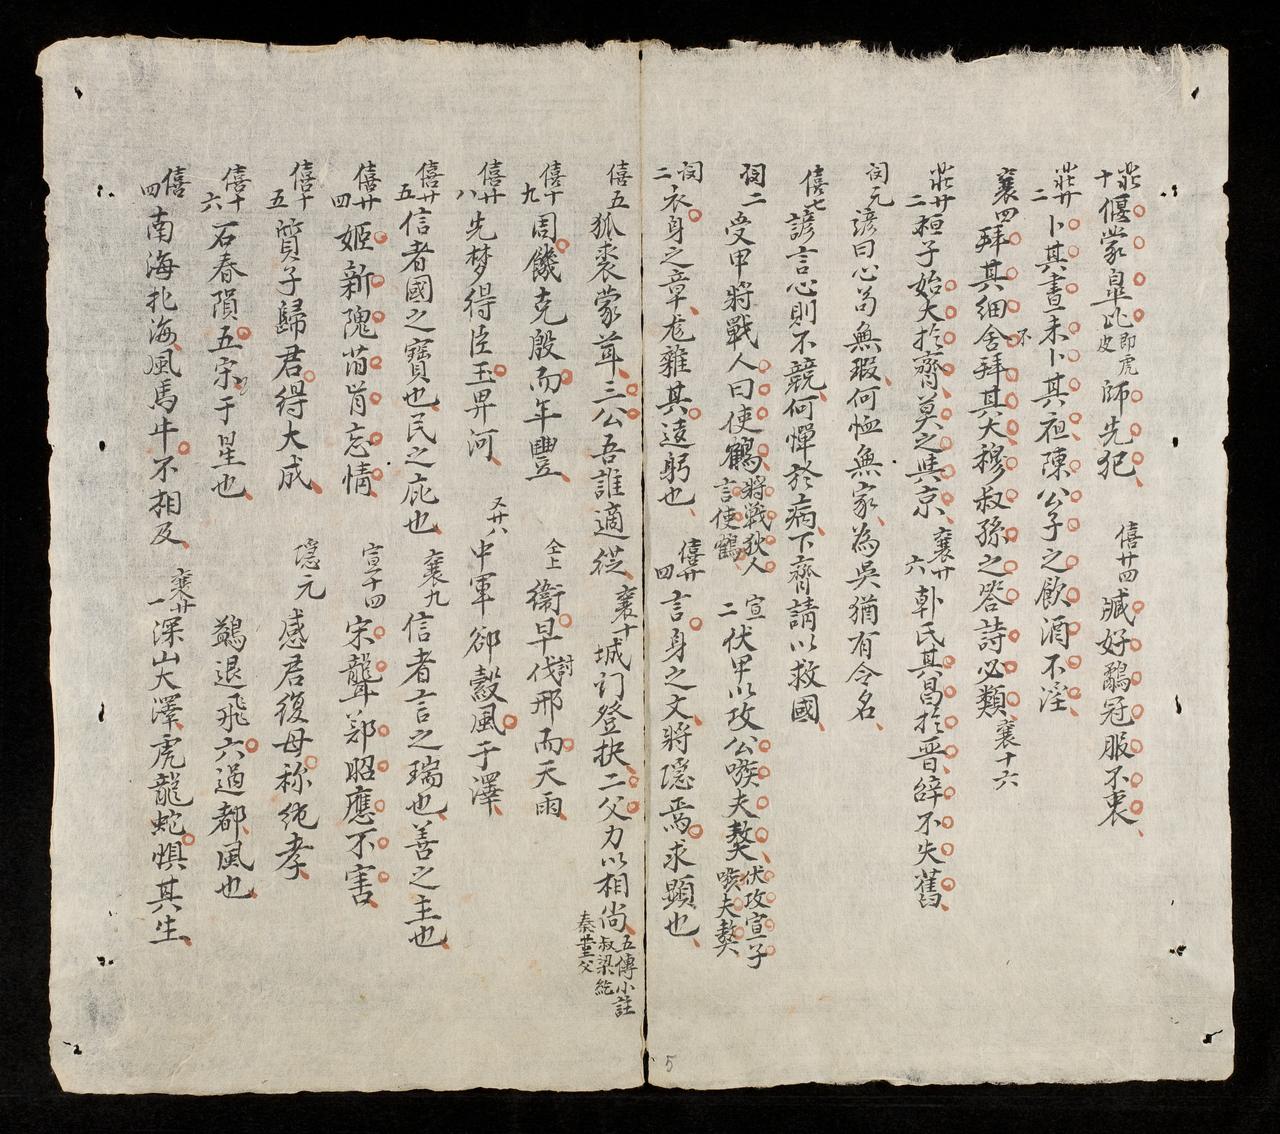 莊十 偃蒙皐比即虎皮師先犯 僖廿四 臧好鷸冠服不衷
莊廿二 卜其晝未卜其夜陳公子之飲酒不淫
襄四 拜其細不舍拜其大穆叔孫之答詩必類 襄十六
莊廿二 桓子始大於齊莫之與京 襄廿六 韓氏其昌於晋辞不失舊
閔元 諺曰心苟無瑕何恤無家為吳猶有令名
僖七 諺言心則不競何憚於病下齊請以救國
閔二 受甲將戰人曰使鶴將戰狄人言使鶴 宣二 伏甲以攻公嗾夫獒伏攻宣子嗾夫獒
閔二 衣身之章尨雜其遠躬也 僖廿四 言身之文將隱焉求顯也
僖五 狐裘蒙茸三公吾誰適從 襄十 城门登抉二父力以相尚五傳小註叔梁紇秦堇父
僖十九 周饑克殷而年豐 仝上 衛旱討伐邢而天雨
僖廿八 先梦得臣玉畀河 又廿八 中軍郤縠風于澤
僖廿五 信者國之寶也民之庇也 襄九 信者言之瑞也善之主也
僖廿四 姬新隗莤肯忘情 宣十四 宋聾鄭昭應不害
僖十五 質子歸君得大成 隱元 感君復母称純孝
僖十六 石春隕五宋于星也 鷁退飛六過都風也
僖四 南海北海風馬牛不相及 襄廿一 深山大澤虎龍蛇惧其生
5